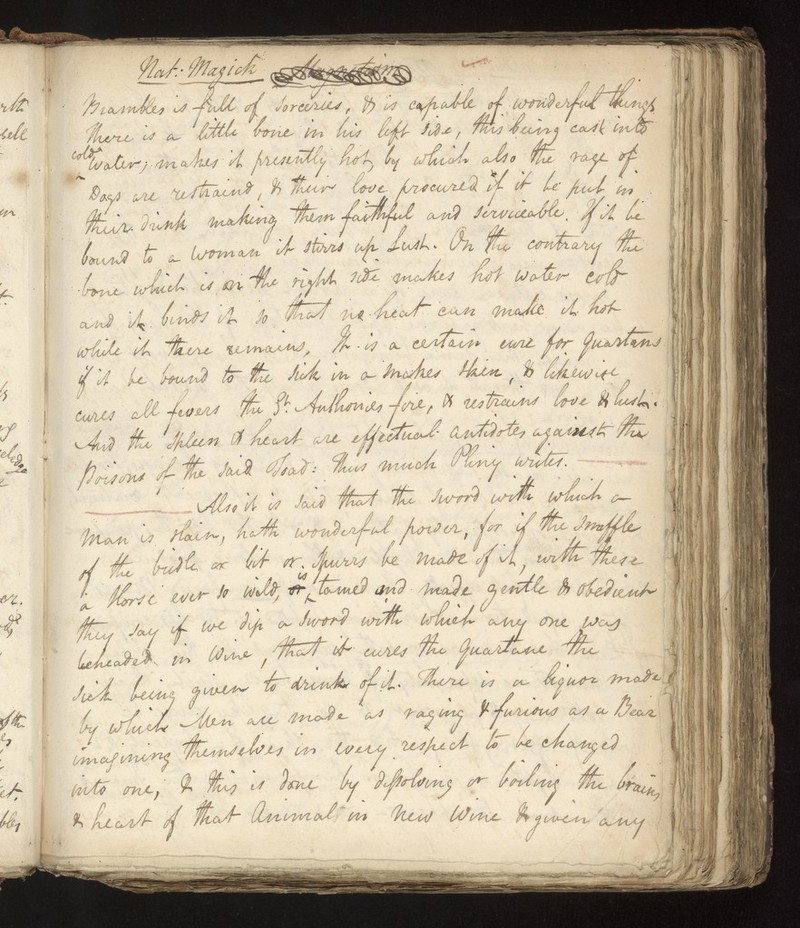 Nat: Magick
Brambles is full of sorceries, & is capable of wonderful things
there is a little bone in his left side, this being cast into
cold
water; makes it presently hot, by which also the rage of
Dogs are restraind, & their love procured if it be put in
their drink making them faithful and serviceable. If it be
bound to a woman it stirrs up Lust. On the contrary the
bone which is on the right side makes hot water cold
and it binds it so that no heat can make it hot
while it there remains, It is a certain cure for quartans
if it be bound to the sick in a snakes skin, & likewise
cures all fevers the St. Anthonies fire, & restrains love & lust.
And the spleen & heart are effectual antidotes against the
Poisons of the said Toad: thus much Pliny writes.
Also it is said that the sword with which a
man is slain, hath wonderful power, for if the snaffle
of the bridle or bit or spurrs be made of it, with these
a Horse ever so wild, is tamed and made gentle & obedient
they say if we dip a sword with which any one was
beheaded in wine, that it cures the quartane the
sick being given to drink of it. There is a liquor made
by which Men are made as raging & furious as a Bear
imagining themselves in every respect to be changed
into one, & this is done by dissolving or boiling the brains
& heart of that Animal in new wine & given any